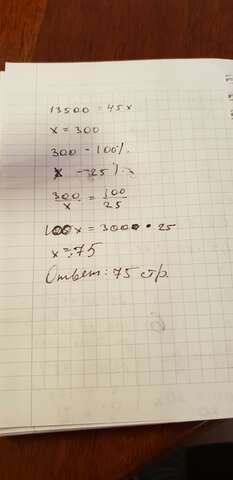 13500 = 45x
x = 300
300 - 100%
x - 25%
300/x = 100/25
100x = 300 • 25
x = 75
Ответ: 75 стр